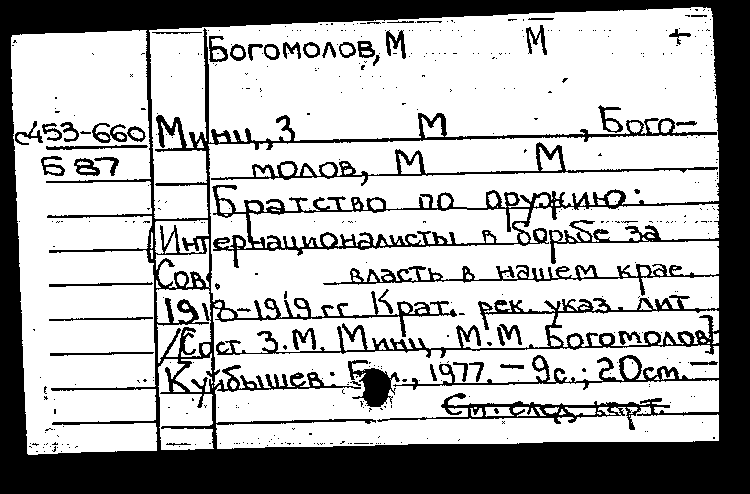 Богомолов, М М +
с453-660 Минц, З М , Бого-
Б 87 молов, М М
Братство по оружию:
(Интернационалисты в борьбе за
Сов. власть в нашем крае.
1918-1919 гг Крат. рек. указ. лит.
/[Сост. З.М. Минц, М.М. Богомолов]
Куйбышев: 1977. - 9с.; 20см. -
См. след. карт.